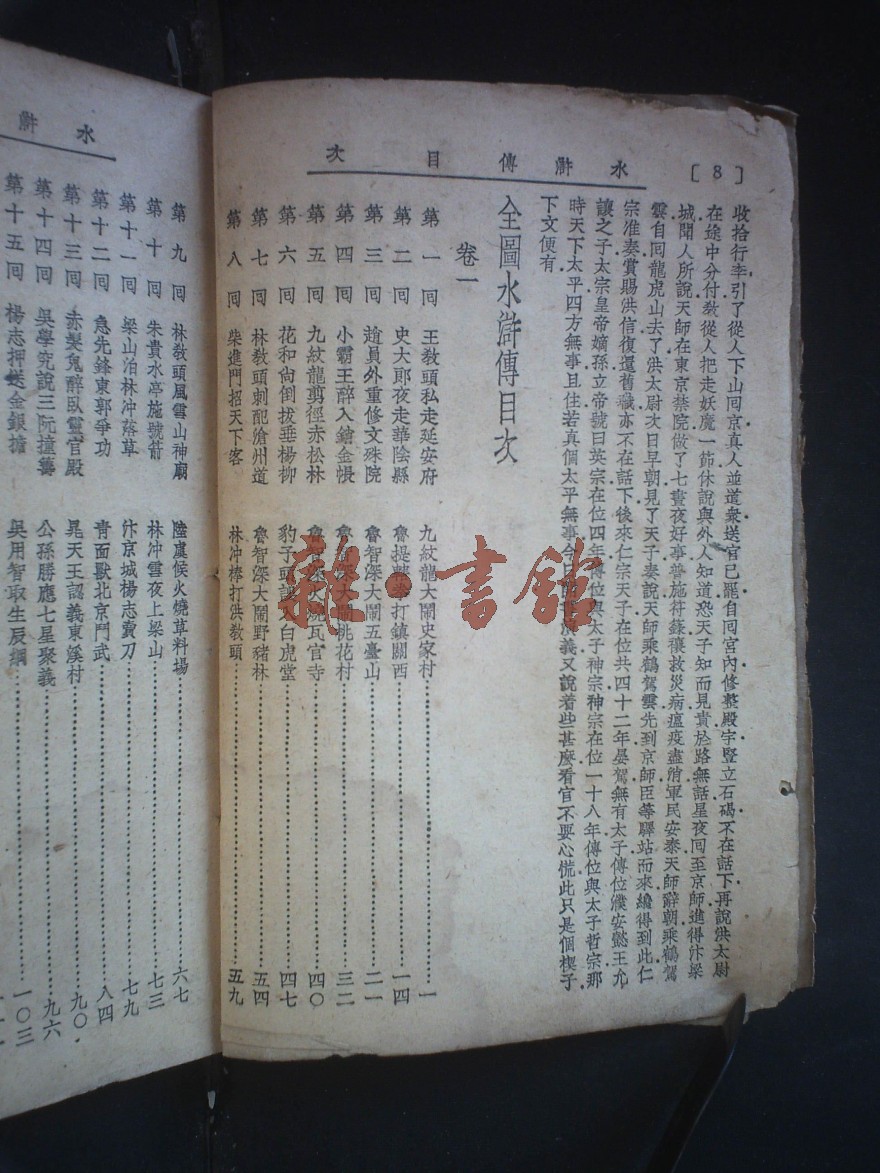 [8]
水滸傳目次
收拾行李引了從人下山回京真人並道衆送官已罷自回宮內修整殿宇豎立石碣不在話下再說洪太尉
在途中分付敎從人把走妖魔一節休說與外人知道恐天子知而見責於路無話星夜回至京師進得汴梁
城聞人所說天師在東京禁院做了七晝夜好事普施符籙禳救災病瘟疫盡消軍民安泰天師辭朝乘鶴駕
雲自回龍虎山去了洪太尉次日早朝見了天子奏說天師乘鶴駕雲先到京師臣等驛站而來纔得到此仁
宗准奏賞賜洪信復還舊職亦不在話下後來仁宗天子在位共四十二年晏駕無有太子傳位濮安懿王允
讓之子太宗皇帝嫡孫立帝號曰英宗在位四年傳位與太子神宗神宗在位一十八年傳位與太子哲宗那
時天下太平四方無事且住若真個太平無事今日義又說着些甚麼看官不要心慌此只是個楔子
下文便有
全圖水滸傳目次
卷一
第一回 王敎頭私走延安府 九紋龍大鬧史家村 一
第二回 史大郞夜走華陰縣 魯提轄拳打鎮關西 一四
第三回 趙員外重修文殊院 魯智深大鬧五臺山 二一
第四回 小霸王醉入銷金帳 魯智深大鬧桃花村 三二
第五回 九紋龍剪徑赤松林 魯智深火燒瓦官寺 四〇
第六回 花和尙倒拔垂楊柳 豹子頭誤入白虎堂 四七
第七回 林敎頭刺配滄州道 魯智深大鬧野豬林 五四
第八回 柴進門招天下客 林冲棒打洪敎頭 五九
水滸
第九回 林敎頭風雪山神廟 陸虞候火燒草料場 六七
第十回 朱貴水亭施號箭 林冲雪夜上梁山 七三
第十一回 梁山泊林冲落草 汴京城楊志賣刀 七九
第十二回 急先鋒東郭爭功 靑面獸北京鬥武 八四
第十三回 赤髮鬼醉臥靈官殿 晁天王認義東溪村 九〇
第十四回 吳學究說三阮撞籌 公孫勝應七星聚義 九六
第十五回 楊志押送金銀擔 吳用智取生辰綱 一〇三
雜·書館